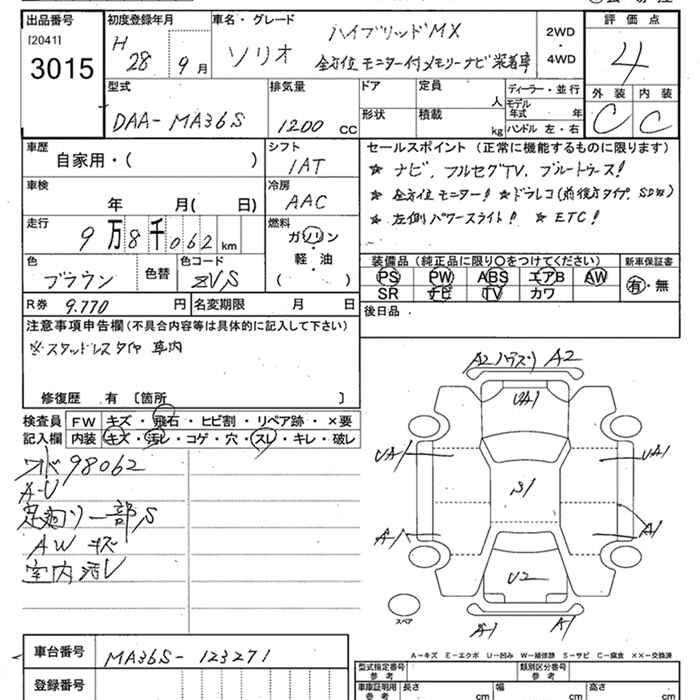 出品番号 初度登録年月 車名・グレード 評価点
[2041] H 28 9月 ソリオ ハイブリッドMX 2WD・4WD 4
3015 全方位モニター付メモリーナビ装着車
型式 排気量 ドア 定員 人 ディーラー・並行 外装 内装
DAA-MA36S 1200 CC 形状 積載 kg モデル年式 年 C C
ハンドル 左・右
車歴 シフト セールスポイント(正常に機能するものに限ります)
自家用・( ) IAT ★ナビ、フルセグTV、ブルートゥース!
車検 冷房 ★全方位モニター! ★ドラレコ(前後方タイプ、SD有)
年 月( 日) AAC ★左側パワースライト! ★ETC!
走行 燃料
9万8千062km ガソリン・軽・油
( )
色 色替 色コード 装備品(純正品に限り○をつけてください) 新車保証書
ブラウン ZVS PS PW ABS エアB AW 有・無
SR ナビ TV カワ
R券 9.770円 名変期限 月 日 後日品
注意事項申告欄(不具合内容等は具体的に記入して下さい)
※スタッドレスタイヤ 車内
修復歴 有 〔箇所 〕
A2 ハヌケ A2
検査員記入欄 FW キズ・飛石・ヒビ割・リペア跡・×要
内装 キズ・汚レ・コゲ・穴・スレ・キレ・破レ
UA1
UA1 UA1
S1
A1 A1
U2
A1
スペア
98062
A-U
足廻り一部S
AW キズ
室内汚レ
A-キズ E-エクボ U-凹み W-補修跡 S-サビ C-腐食 ××-交換済
車台番号 MA36S-123271
登録番号
型式指定番号 参考 類別区分番号 参考
車庫証明用 参考 長さ cm 幅 cm 高さ cm